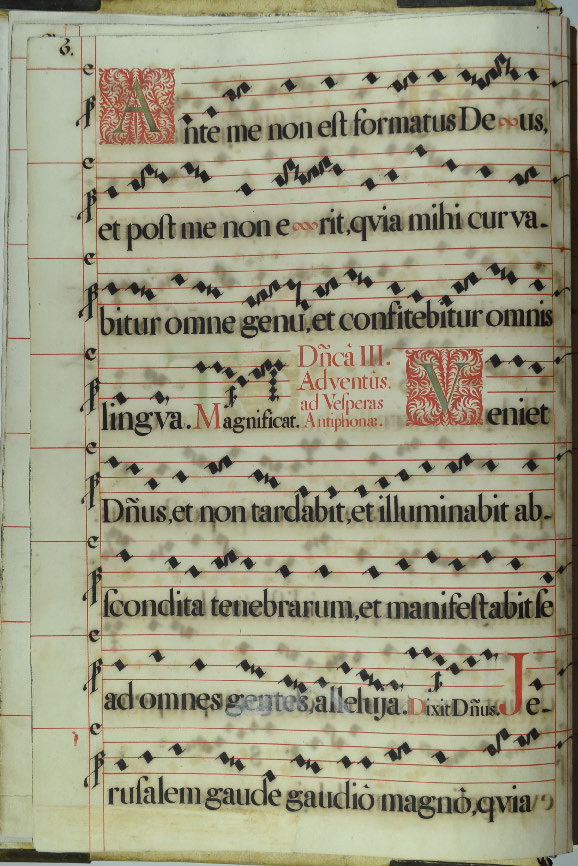 6.
Ante me non eſt formatus De us,
et poſt me non e rit, qvia mihi curva-
bitur omne genu, et confitebitur omnis
lingva. Magnificat. Dñcà III. Adventus. ad Veſperas Antiphonæ. Veniet
Dñus, et non tardabit, et illuminabit ab-
ſcondita tenebrarum, et manifeſtabit ſe
ad omnes gentes, alleluja. Dixit Dñus. Je-
ruſalem gaude gaudiò magnò, qvia